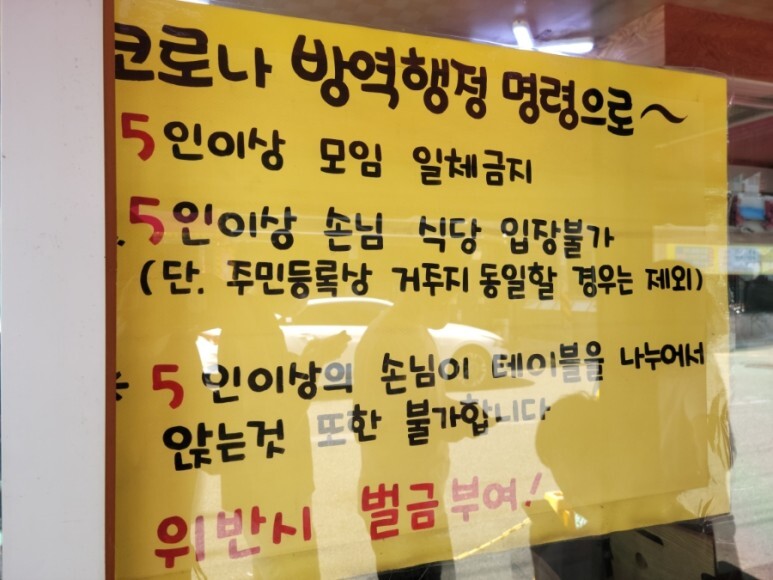 코로나 방역행정 명령으로~
5인이상 모임 일체금지
5인이상 손님 식당 입장불가
(단. 주민등록상 거주지 동일할 경우는 제외)
※ 5인이상의 손님이 테이블을 나누에서
앉는것 또한 불가합니다
위반시 벌금부여!